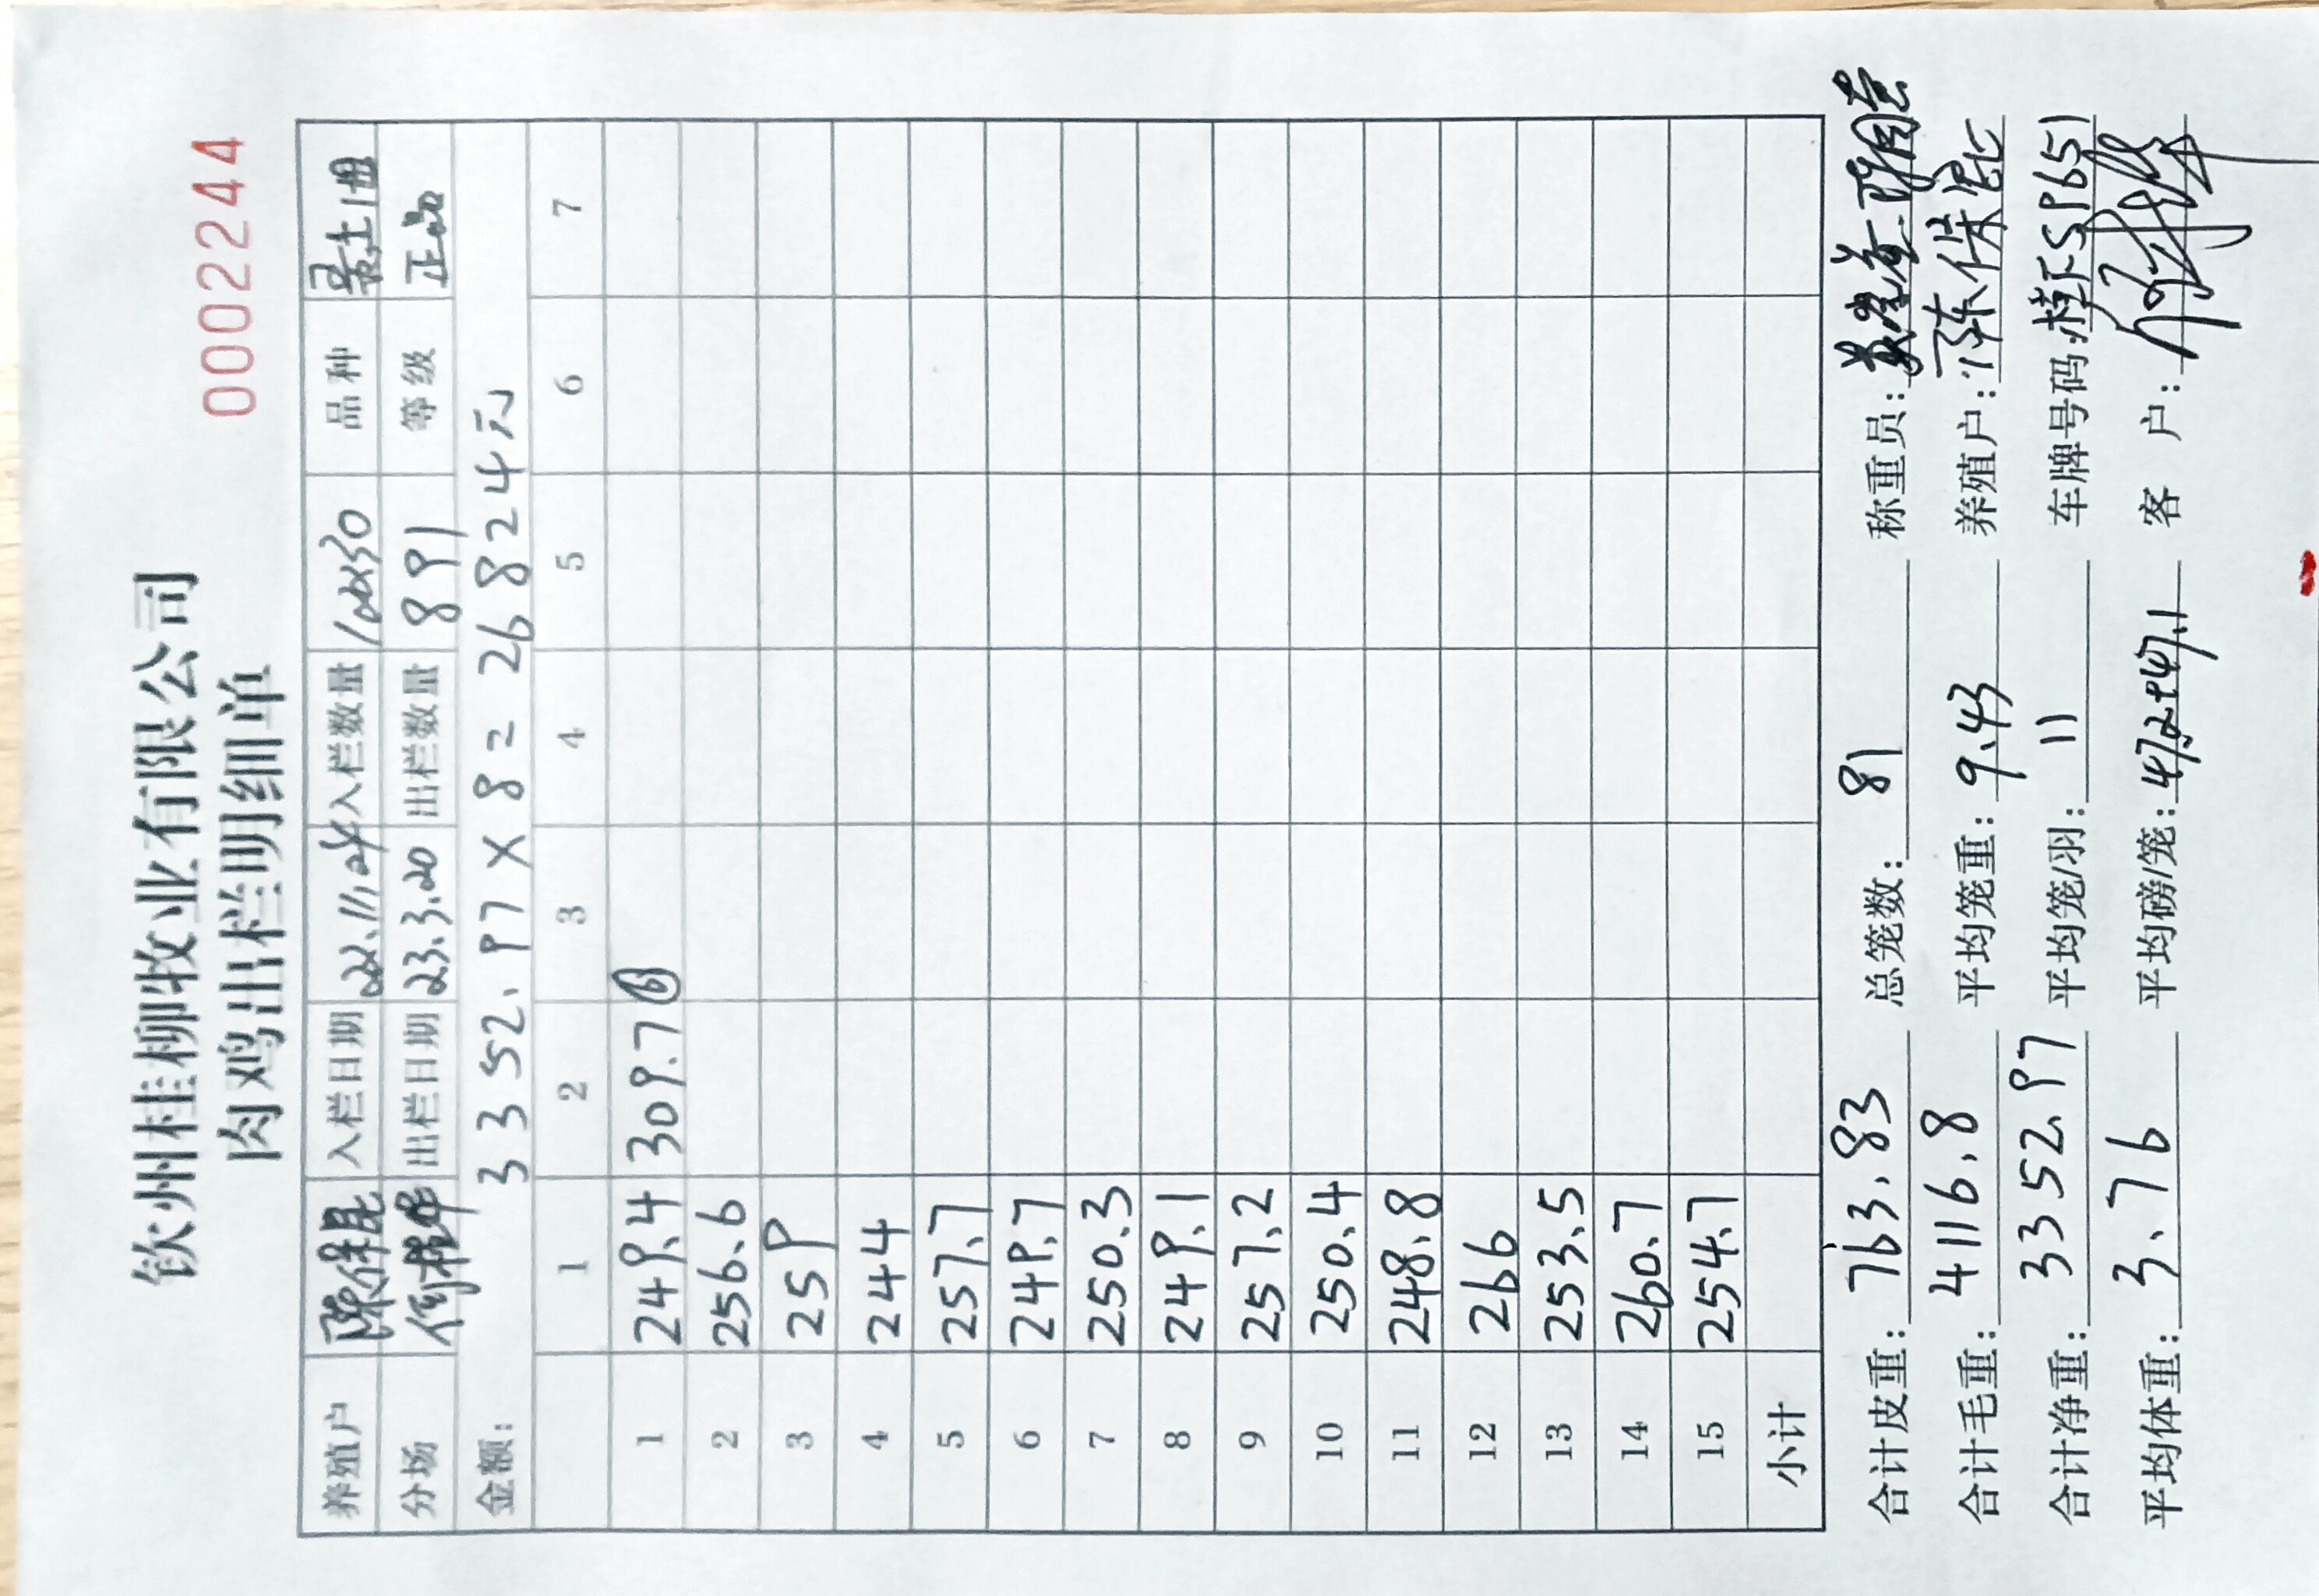 钦州桂柳牧业有限公司
肉鸡出栏明细单
0002244
养殖户 陈保昆 入栏日期 22.11.24 入栏数量 10030 品种
分场 出栏日期 23.3.20 出栏数量 891 等级 正品
金额： 3352.97×8=26824元
1 2 3 4 5 6 7
1 249.4 309.7 ⑥
2 256.6
3 259
4 244
5 257.7
6 249.7
7 250.3
8 249.1
9 257.2
10 250.4
11 248.8
12 266
13 253.5
14 260.7
15 254.7
小计
合计皮重： 763.83 总笼数： 81 称重员：
合计毛重： 4116.8 平均笼重： 9.43 养殖户： 陈保昆
合计净重： 3352.97 平均笼/羽： 11 车牌号码： 5P651
平均体重： 3.76 平均磅/笼： 客 户：